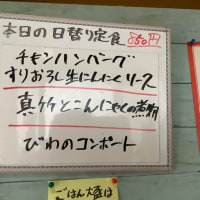 本日の日替り定食 850円
チキンハンバーグ
すりおろし生にんにくソース
真竹とこんにゃくの煮物
びわのコンポート
ごはん大盛は